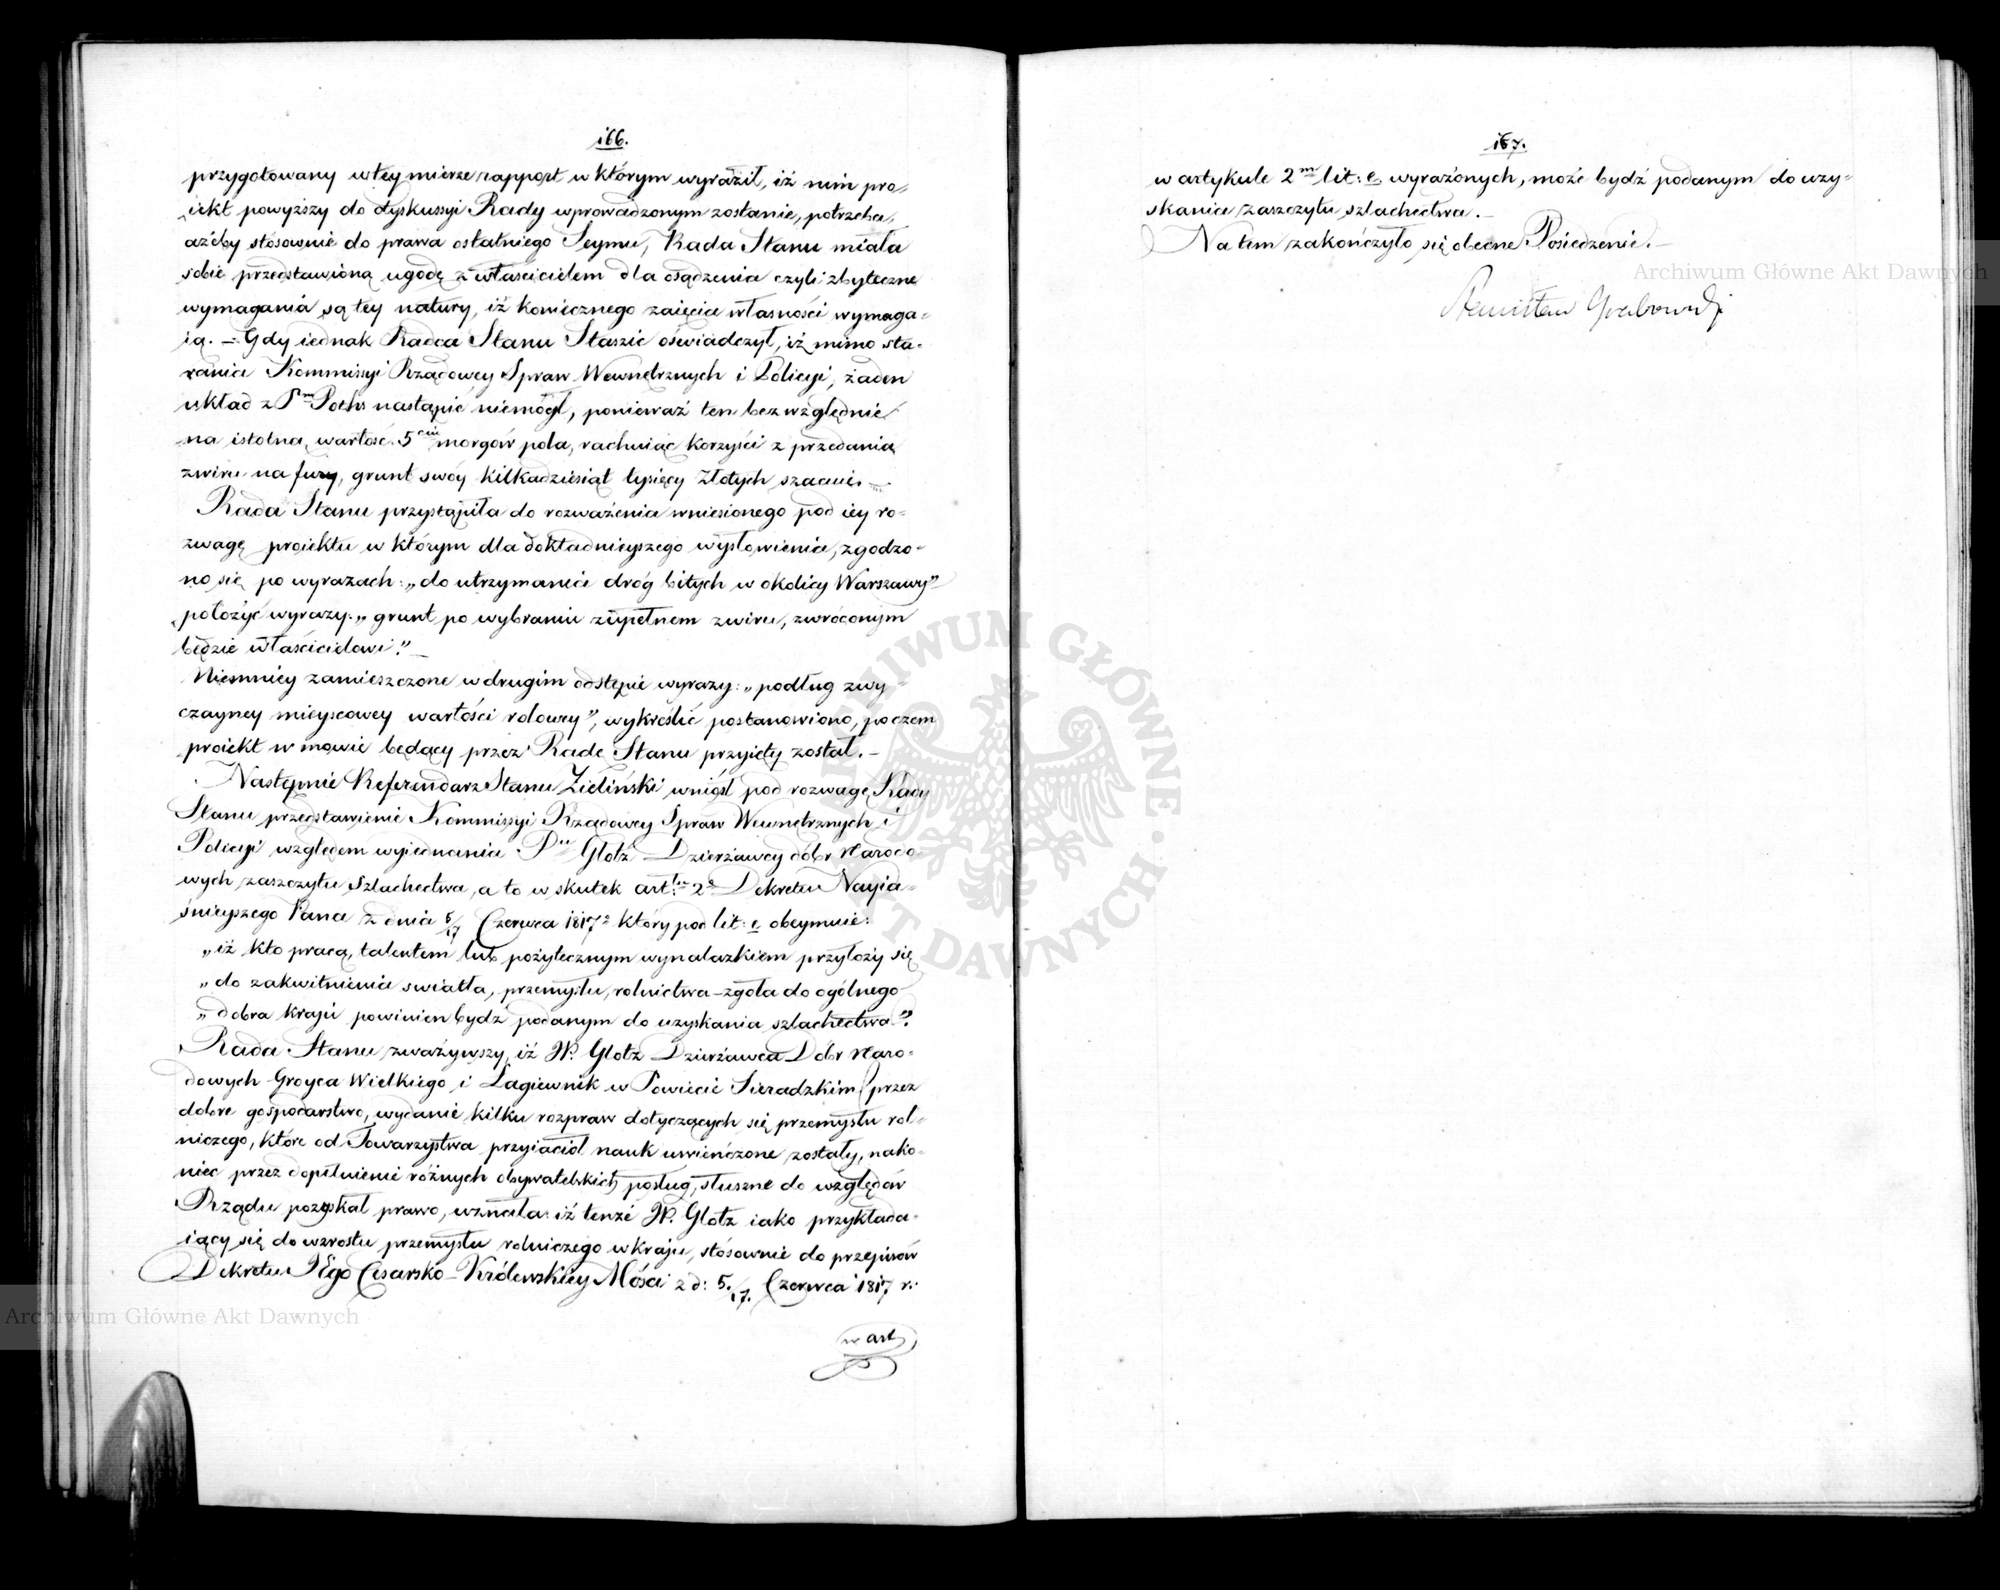 166.
przygotowany w tey mierze rapport w którym wyraził, iż nim pro-
iekt powyższy do dyskussyi Rady wprowadzonym zostanie, potrzeba,
ażeby stósownie do prawa ostatniego Seymu, Rada Stanu miała
sobie przedstawioną ugodę z właścicielem dla osądzenia czyli zbyteczne
wymagania są tey natury, iż koniecznego zaięcia własności wymaga-
ią. – Gdy iednak Radca Stanu Staszic oświadczył, iż mimo sta-
rania Kommissyi Rządowey Spraw Wewnętrznych i Policyi, żaden
układ z P^m Poths nastąpić niemógł, ponieważ ten bezwzględnie
na istotną wartość 5^ciu morgów pola, rachuiąc korzyści z przedania
zwiru na fury, grunt swóy kilkadziesiąt tysięcy Złotych szacuie. –
Rada Stanu przystąpiła do rozważenia wniesionego pod iey ro-
zwagę proiektu w którym dla dokładnieyszego wysłowienia, zgodzo-
no się po wyrazach: „do utrzymania dróg bitych w okolicy Warszawy”
położyć wyrazy: „grunt po wybraniu zupełnem zwiru, zwróconym
będzie właścicielowi.” –
Niemniey zamieszczone w drugim odstępie wyrazy: „podług zwy-
czayney mieyscowey wartości rolowey”, wykreślić postanowiono, poczem
proiekt w mowie będący przez Radę Stanu przyięty został. –
Następnie Referendarz Stanu Zieliński wniósł pod rozwagę Rady
Stanu przedstawienie Kommissyi Rządowey Spraw Wewnętrznych i
Policyi względem wyiednania P^u Glotz Dzierżawcy dóbr Narodo-
wych zaszczytu Szlachectwa, a to w skutek art^łu 2^o Dekretu Nayia-
śnieyszego Pana z dnia 5/17 Czerwca 1817^o który pod lit: e obeymuie:
„iż kto pracą, talentem lub pożytecznym wynalazkiem przyłoży się
„do zakwitnienia swiatła, przemysłu, rolnictwa – zgoła do ogólnego
„dobra kraju powinien bydź podanym do uzyskania szlachectwa”.
Rada Stanu zważywszy, iż W. Glotz Dzierżawca Dóbr Naro-
dowych Groyca Wielkiego i Łagiewnik w Powiecie Sieradzkim przez
dobre gospodarstwo, wydanie kilku rozpraw dotyczących się przemysłu rol-
niczego, które od Towarzystwa przyiaciół nauk uwieńczone zostały, nako-
niec przez dopełnienie różnych obywatelskich posług, słuszne do względów
Rządu pozyskał prawo, uznała: iż tenże W. Glotz iako przykłada-
iący się do wzrostu przemysłu rolniczego w kraju, stósownie do przepisów
Dekretu JEgo Cesarsko-Królewskiey Mości z d: 5./17. Czerwca 1817 r:
w art
167.
w artykule 2^m lit: e wyrażonych, może bydź podanym do uzy-
skania zaszczytu szlachectwa. –
Na tem zakończyło się obecne Posiedzenie. –
Stanisław Grabowski
Archiwum Główne Akt Dawnych
Archiwum Główne Akt Dawnych
ARCHIWUM GŁÓWNE AKT DAWNYCH